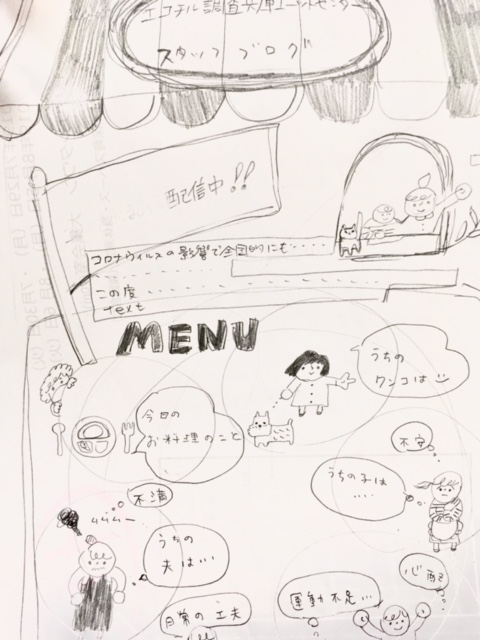 エコチル調査兵庫ユニットセンター
スタッフ ブログ
配信中!!
コロナウィルスの影響で全国的にも・・・・
この度
text
MENU
うちの
ワンコは
今日の
お料理のこと
不安
うちの子は
・・・・
不満
うちの
夫は・・・
心配
運動不足・・・
日常の工夫